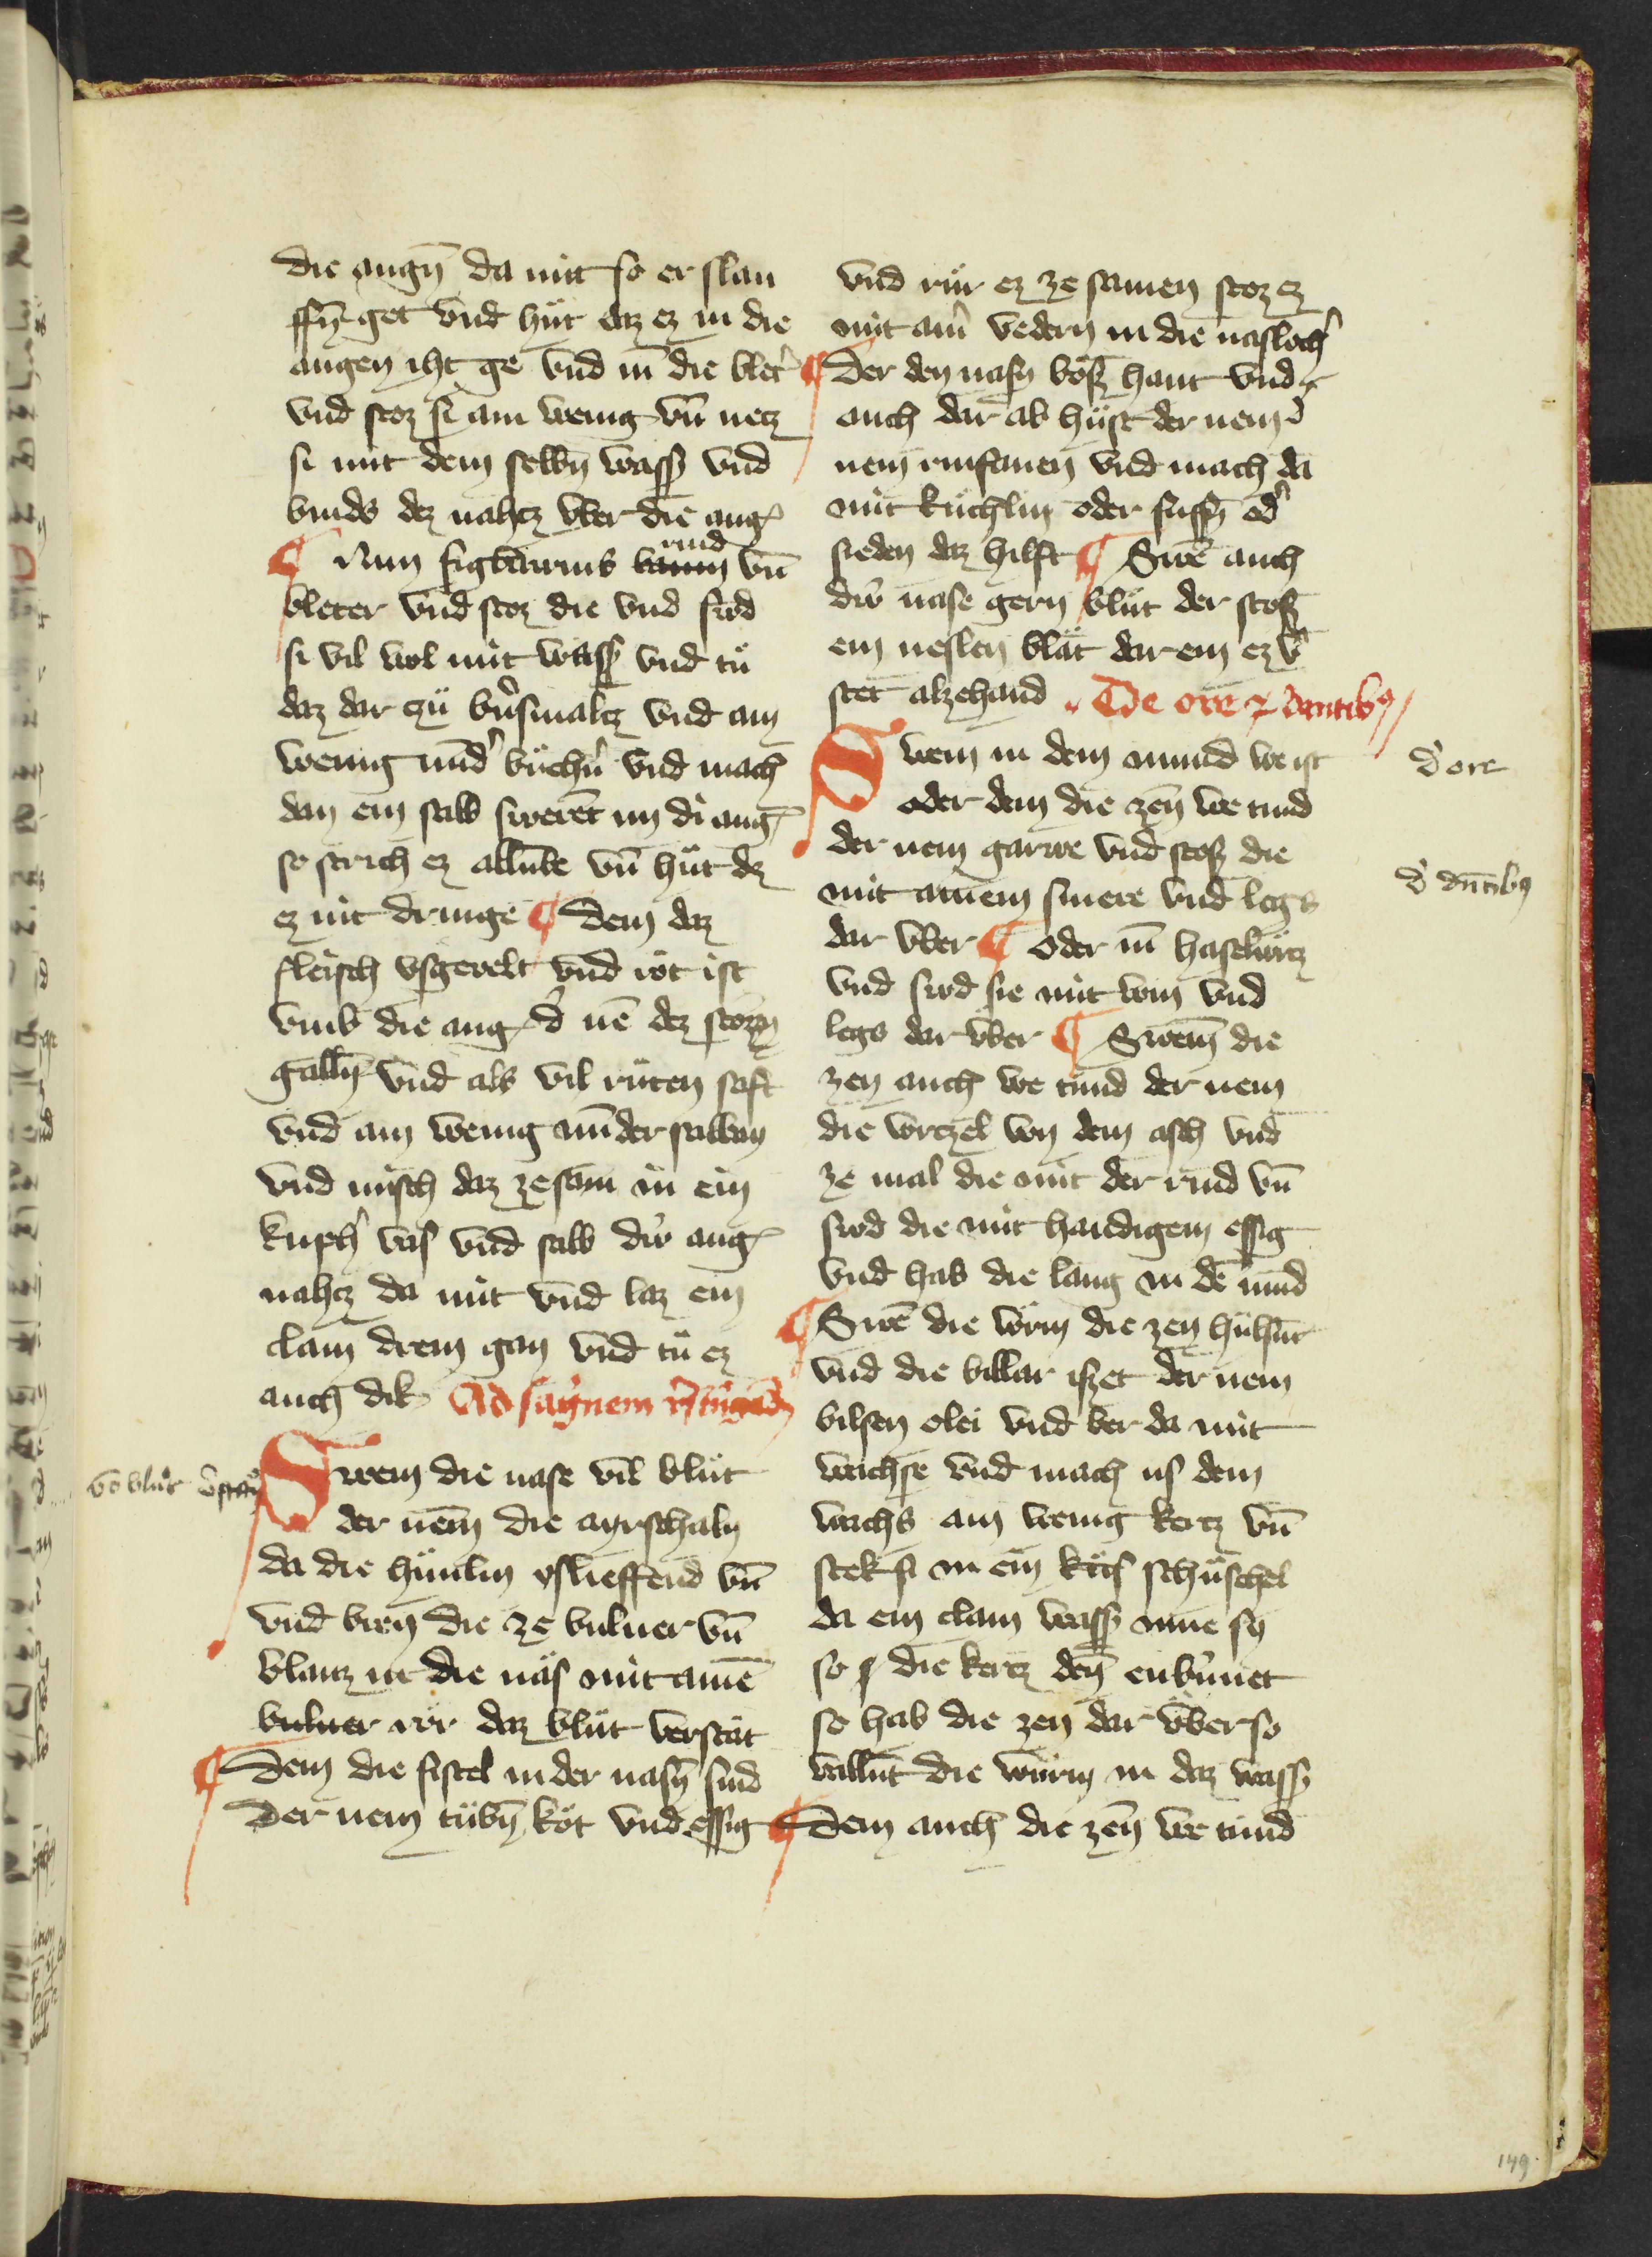 die augn̄ da mit so er slan
ffn̄ get vnd huͤt daz ez in die
augen iht ge vnd in̄ die blet᷑
vnd stoz si ain wenig vn̄ netz
si mit dem selbn̄ wassʒ vnd
binds dez nahtz vber die aug
¶ Nim figbaums rind vn̄
bleter vnd stoz die vnd sud
si vil wol mit wassʒ vnd tuͤ
daz dar zuͤ bu᷑smaltz vnd ain
wenig mīd᷑ buͤchu᷑ vnd mach
dan ein salb swerēt im di aug
so strich ez allumbe vn̄ huͤt dz
ez nit dringe ¶ Dem daz
fleisch vsgevelt vnd rot ist
vmb die aug d᷑ nē dez storzn
galln̄ vnd als vil ruͤten saft
vnd ain wenig minder salben
vnd misch daz zesam in ein
kuph᷑ vas vnd salb diu᷑ aug
nahtz da mit vnd laz ein
clain drein gan vnd tuͤ ez
auch dik Ad saguinem
vō bluͦt v᷑stan
Swem die nase vil bluͤt
der nem̄ die ayrschaln
da die huͤnlin vslieffend vn̄
vnd bren̄ die ze buluer vn̄
blautz in die nas mit ainē
buluer vor daz bluͤt verstat
¶ Dem die fistel in der nasn̄ sind
der nem tuͤbn̄ kot vnd essig
vnd ruͤr ez ze samen stoz ez
mit aim̄ vedern in die nasloch᷑
¶ Der den nasn boͤsʒ haut vnd
auch dar ab huͤst der nem
nem rinfanen vnd mach da
mit kuͤchlin oder suffn̄ od᷑
sieden daz hilft ¶ Swē auch
diu᷑ nase gern bluͤt der stosʒ
ein neslen blat dar ein ez v᷑
stet alzehand De ore & dentib9
Swem in dem mund we ist
oder dem die zen̄ we tund
der nem garwe vnd stosʒ die
mit ainem smere vnd legs
dar vber ¶ oder im̄ haselwrtz
vnd sud sie mit win vnd
legs dar vber ¶ Swem̄ die
zen auch we tund der nem
die wrtzel von dem asch vnd
ze mal die mit der rind vn̄
sud die mit haidigem essig
vnd hab die lang in dē mund
¶ Swē die wuͤrm die zen huͤlsut
vnd die billar isʒet der nem
bilsen olei vnd ber da mit
wachse vnd mach us dem
wachs ain wenig kertz vn̄
stek si in ein schuͤschel
da ein clain wassʒ inne sy
so die kertz den̄ enbrinnet
so hab die zen dar vber so
vallūt die wuͤrm in daz wassʒ
¶ Dem auch die zen̄ we tund
d᷑ ore
d᷑ dn̄tib9
149